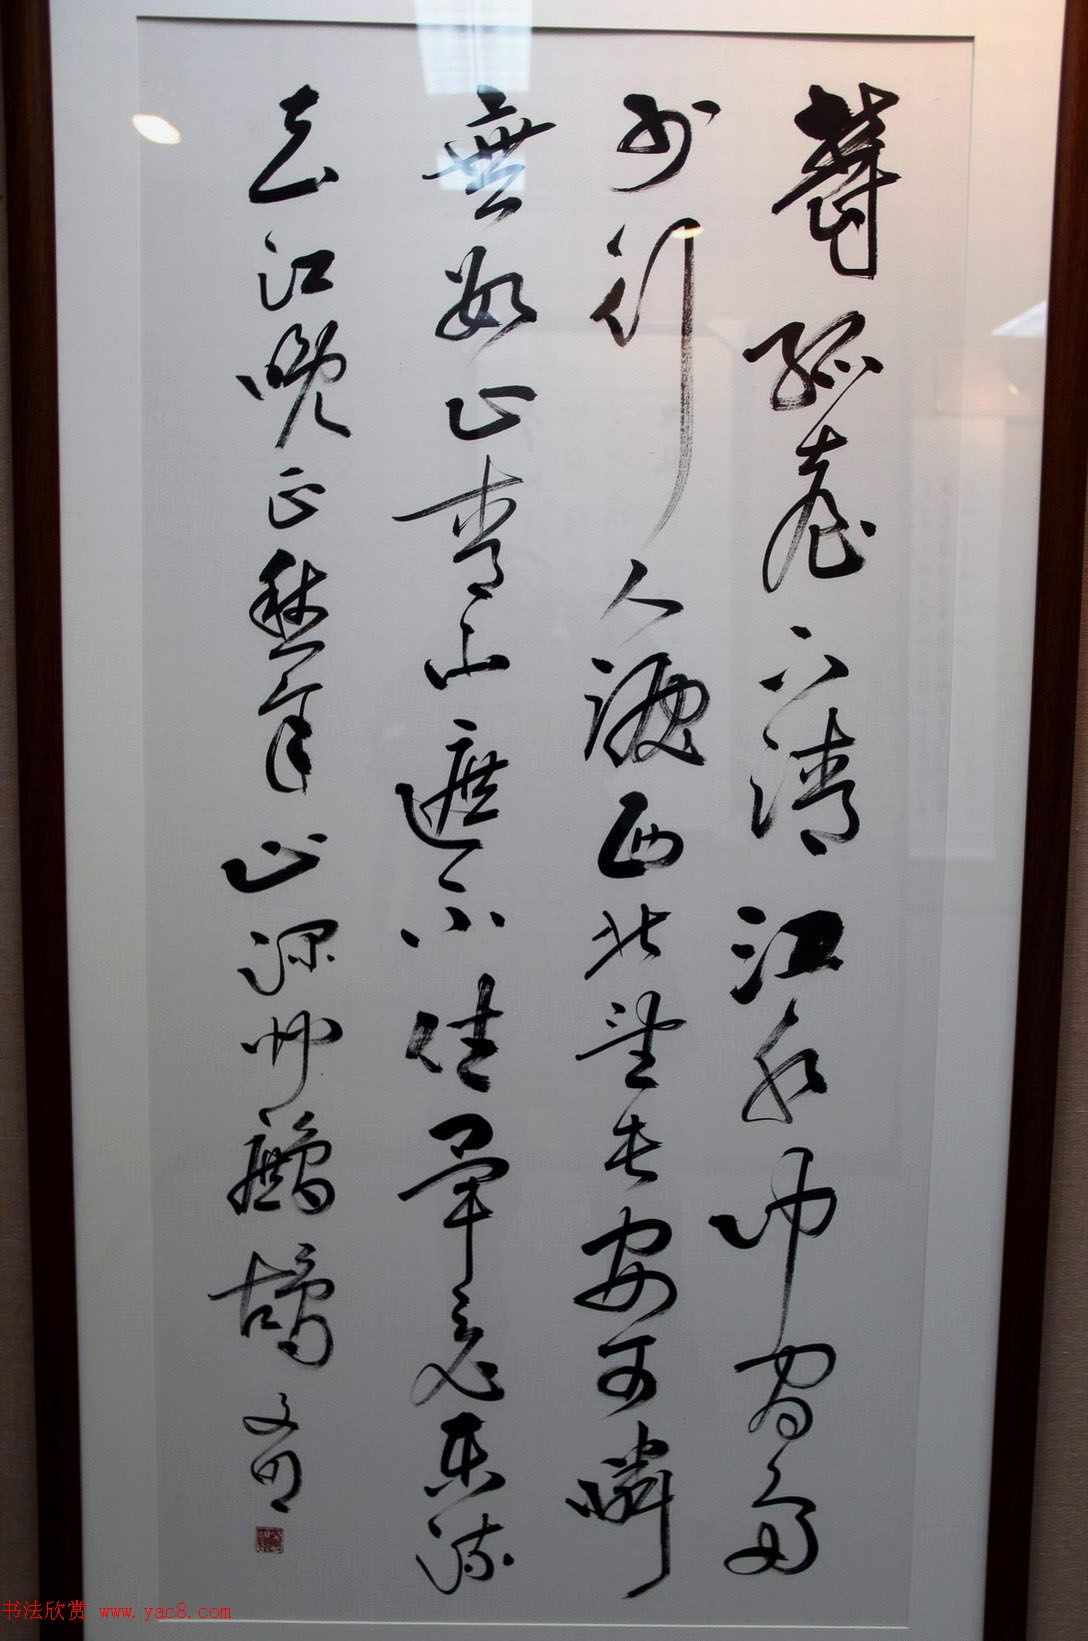 鬱孤臺下清江水中間多
少行人淚西北望長安可憐
無數山青山遮不住畢竟東流
去江晚正愁余山深聞鷓鴣
书法欣赏 www.yac8.com